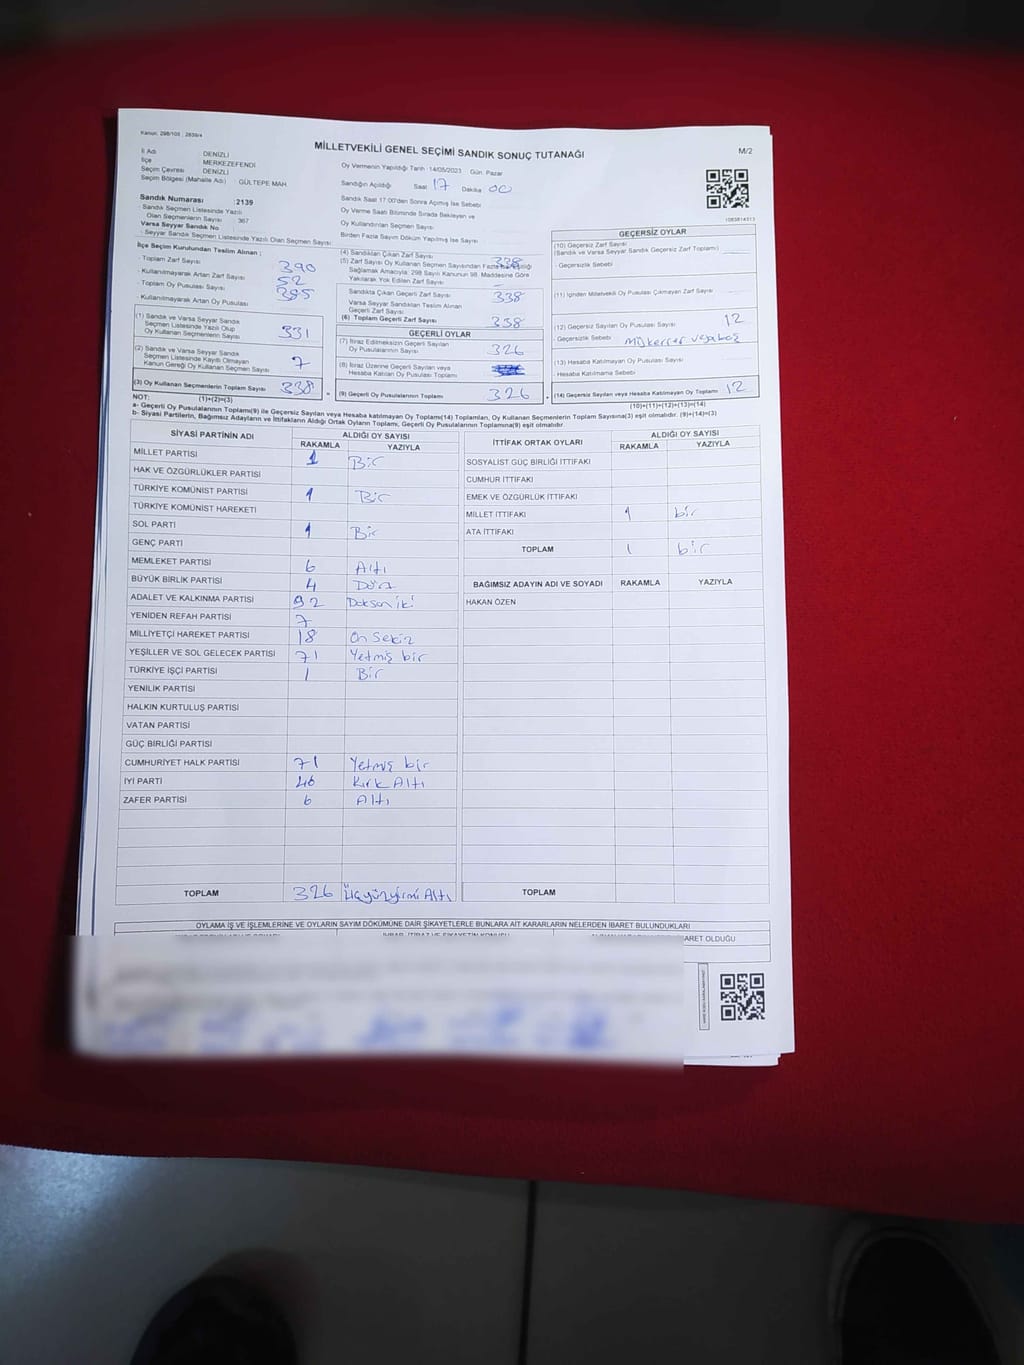 Kanun: 298/105 ; 2839/4
MİLLETVEKİLİ GENEL SEÇİMİ SANDIK SONUÇ TUTANAĞI
M/2
İl Adı : DENİZLİ
İlçe : MERKEZEFENDİ
Seçim Çevresi : DENİZLİ
Seçim Bölgesi (Mahalle Adı) : GÜLTEPE MAH
Oy Vermenin Yapıldığı Tarih :14/05/2023 Gün: Pazar
Sandığın Açıldığı Saat 17 Dakika 00
Sandık Saat 17:00'den Sonra Açılmış İse Sebebi
Oy Verme Saati Bitiminde Sırada Bekleyen ve
Oy Kullandırılan Seçmen Sayısı
Birden Fazla Sayım Döküm Yapılmış İse Sayısı
Sandık Numarası :2139
Sandık Seçmen Listesinde Yazılı
Olan Seçmenlerin Sayısı : 367
Varsa Seyyar Sandık No
Seyyar Sandık Seçmen Listesinde Yazılı Olan Seçmen Sayısı:
İlçe Seçim Kurulundan Teslim Alınan :
Toplam Zarf Sayısı 390
Kullanılmayarak Artan Zarf Sayısı 52
Toplam Oy Pusulası Sayısı 395
Kullanılmayarak Artan Oy Pusulası
(1) Sandık ve Varsa Seyyar Sandık
Seçmen Listesinde Yazılı Olup
Oy Kullanan Seçmenlerin Sayısı 331
(2) Sandık ve Varsa Seyyar Sandık
Seçmen Listesinde Kayıtlı Olmayan
Kanun Gereği Oy Kullanan Seçmen Sayısı 7
(3) Oy Kullanan Seçmenlerin Toplam Sayısı 338
(1)+(2)=(3)
(4) Sandıktan Çıkan Zarf Sayısı 338
(5) Zarf Sayısı Oy Kullanan Seçmen Sayısından Fazla
Sağlamak Amacıyla: 298 Sayılı Kanunun 98. Maddesine Göre
Yakılarak Yok Edilen Zarf Sayısı
Sandıkta Çıkan Geçerli Zarf Sayısı 338
Varsa Seyyar Sandıktan Teslim Alınan
Geçerli Zarf Sayısı
(6) Toplam Geçerli Zarf Sayısı 338
GEÇERLİ OYLAR
(7) İtiraz Edilmeksizin Geçerli Sayılan
Oy Pusulalarının Sayısı 326
(8) İtiraz Üzerine Geçerli Sayılan veya
Hesaba Katılan Oy Pusulası Toplamı
(9) Geçerli Oy Pusulalarının Toplamı 326
1083814313
GEÇERSİZ OYLAR
(10) Geçersiz Zarf Sayısı
(Sandık ve Varsa Seyyar Sandık Geçersiz Zarf Toplamı)
- Geçersizlik Sebebi
(11) İçinden Milletvekili Oy Pusulası Çıkmayan Zarf Sayısı
(12) Geçersiz Sayılan Oy Pusulası Sayısı 12
- Geçersizlik Sebebi Mükerrer veya boş
(13) Hesaba Katılmayan Oy Pusulası Sayısı
- Hesaba Katılmama Sebebi
(14) Geçersiz Sayılan veya Hesaba Katılmayan Oy Toplamı 12
(10)+(11)+(12)+(13)=(14)
NOT:
a- Geçerli Oy Pusulalarının Toplamı(9) ile Geçersiz Sayılan veya Hesaba katılmayan Oy Toplam(14) Toplamları, Oy Kullanan Seçmenlerin Toplam Sayısına(3) eşit olmalıdır. (9)+(14)=(3)
b- Siyasi Partilerin, Bağımsız Adayların ve İttifakların Aldığı Ortak Oyların Toplamı, Geçerli Oy Pusulalarının Toplamına(9) eşit olmalıdır.
SİYASİ PARTİNİN ADI ALDIĞI OY SAYISI
RAKAMLA YAZIYLA
MİLLET PARTİSİ 1 Bir
HAK VE ÖZGÜRLÜKLER PARTİSİ
TÜRKİYE KOMÜNİST PARTİSİ 1 Bir
TÜRKİYE KOMÜNİST HAREKETİ
SOL PARTİ 1 Bir
GENÇ PARTİ
MEMLEKET PARTİSİ 6 Altı
BÜYÜK BİRLİK PARTİSİ 4 Dört
ADALET VE KALKINMA PARTİSİ 92 Doksan iki
YENİDEN REFAH PARTİSİ 7
MİLLİYETÇİ HAREKET PARTİSİ 18 On Sekiz
YEŞİLLER VE SOL GELECEK PARTİSİ 71 Yetmiş bir
TÜRKİYE İŞÇİ PARTİSİ 1 Bir
YENİLİK PARTİSİ
HALKIN KURTULUŞ PARTİSİ
VATAN PARTİSİ
GÜÇ BİRLİĞİ PARTİSİ
CUMHURİYET HALK PARTİSİ 71 Yetmiş bir
İYİ PARTİ 46 Kırk Altı
ZAFER PARTİSİ 6 Altı
TOPLAM 326 Üçyüzyirmi Altı
İTTİFAK ORTAK OYLARI ALDIĞI OY SAYISI
RAKAMLA YAZIYLA
SOSYALİST GÜÇ BİRLİĞİ İTTİFAKI
CUMHUR İTTİFAKI
EMEK VE ÖZGÜRLÜK İTTİFAKI
MİLLET İTTİFAKI 1 bir
ATA İTTİFAKI
TOPLAM 1 bir
BAĞIMSIZ ADAYIN ADI VE SOYADI RAKAMLA YAZIYLA
HAKAN ÖZEN
TOPLAM
OYLAMA İŞ VE İŞLEMLERİNE VE OYLARIN SAYIM DÖKÜMÜNE DAİR ŞİKAYETLERLE BUNLARA AİT KARARLARIN NELERDEN İBARET BULUNDUKLARI
İBARET OLDUĞU